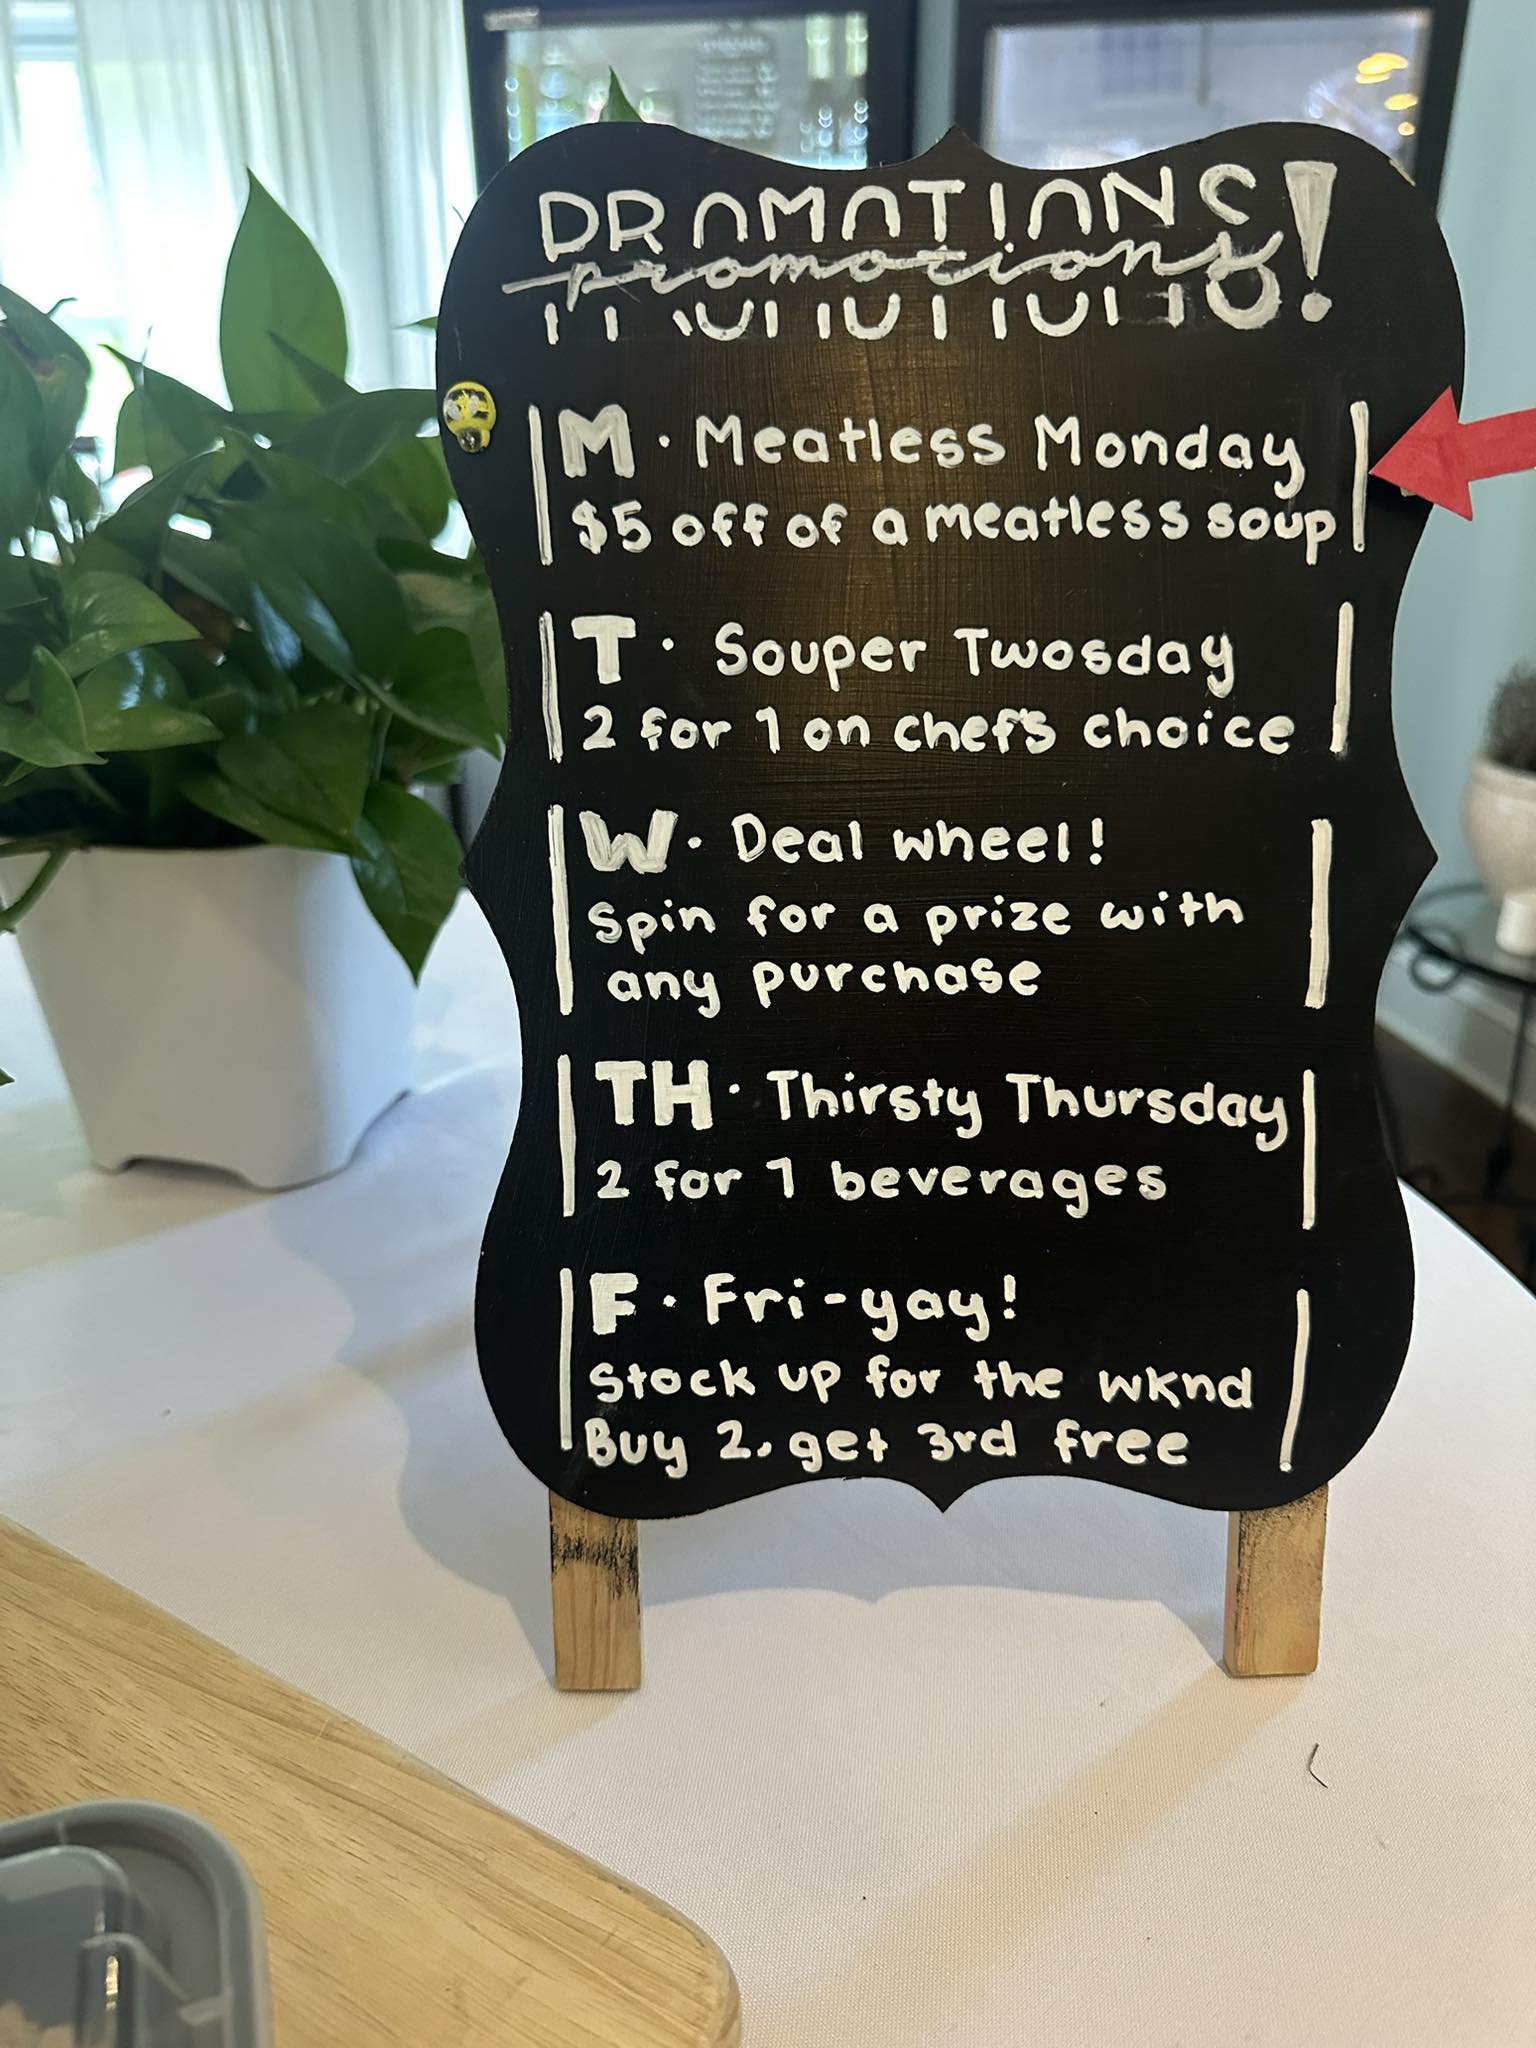 PROMOTIONS!
promotions
M · Meatless Monday
$5 off of a meatless soup
T · Souper Twosday
2 for 1 on chef's choice
W · Deal wheel!
Spin for a prize with
any purchase
TH · Thirsty Thursday
2 for 1 beverages
F · Fri-yay!
Stock up for the wknd
Buy 2, get 3rd free